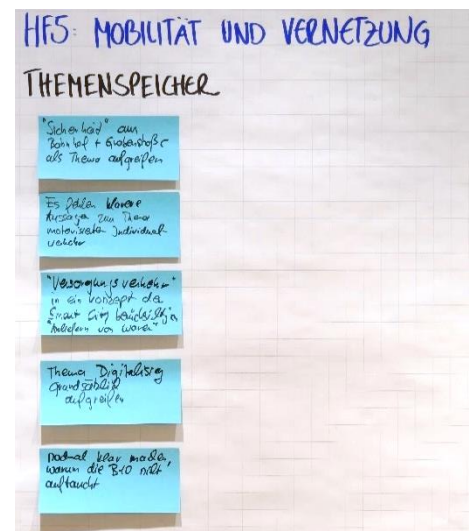 HF5: MOBILITÄT UND VERNETZUNG
THEMENSPEICHER
"Sicherheit" am
Bahnhof + Grabenstraße
als Thema aufgreifen
Es fehlen klarere
Aussagen zum Thema
motorisierten Individual-
verkehr
"Versorgungsverkehr"
in ein Konzept der
Smart City berücksichtigen
von Waren"
Thema Digitalisierung
grundsätzlich
aufgreifen
nochmal klar machen,
warum die B10 nicht
auftaucht